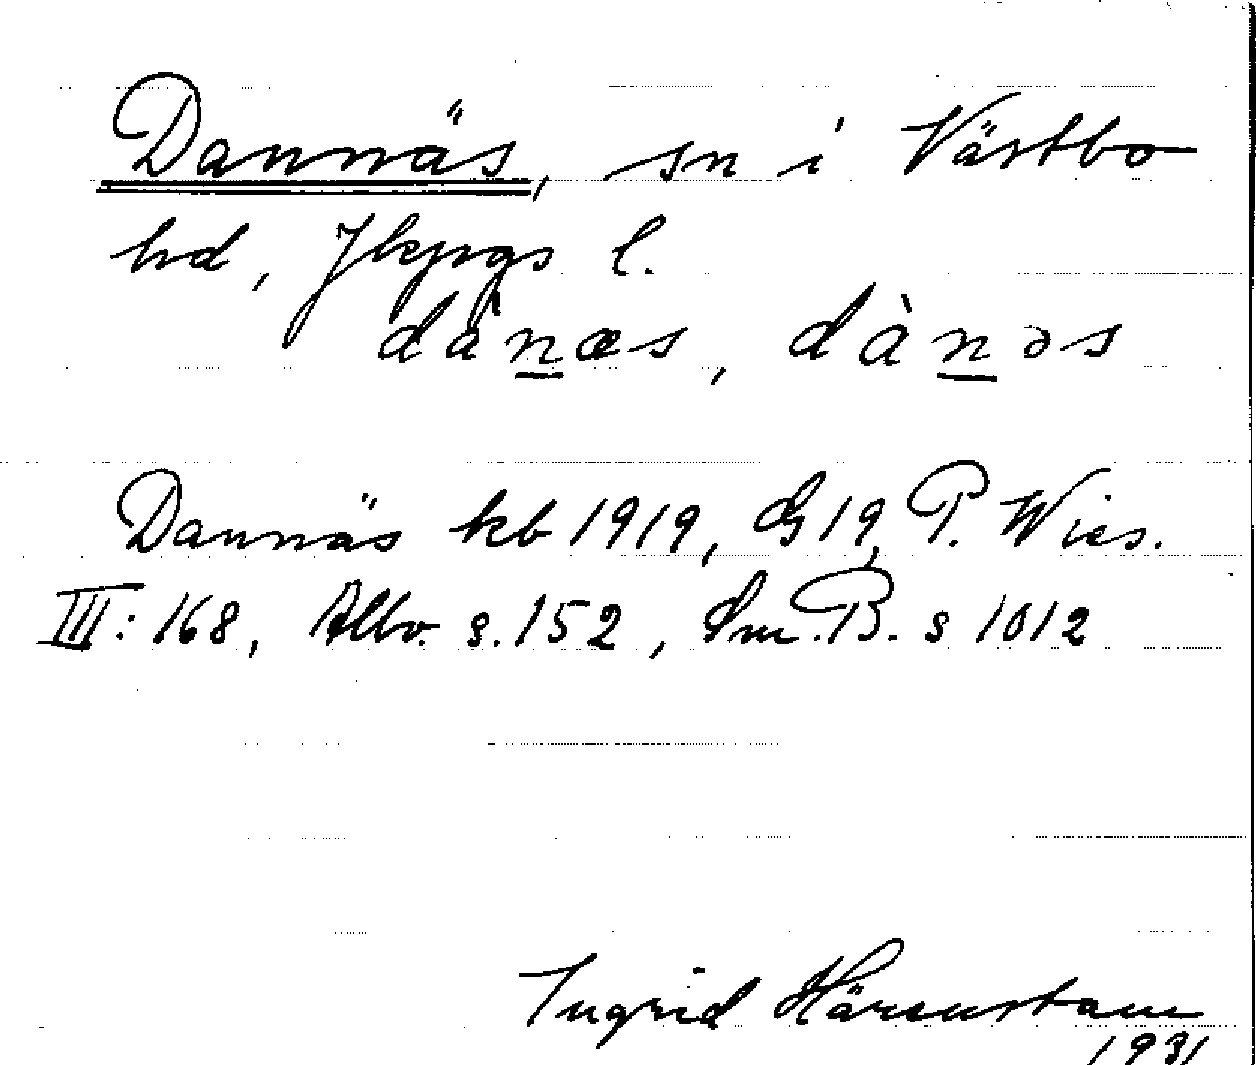 Dannäs, sn i Västbo
hd, Jkpgs l.
dànæs, dànəs
Dannäs kb 1919, G19, P. Wies.
III: 168, Allv. s. 152, Sm. B. s 1012
Ingrid Härenstam
1931